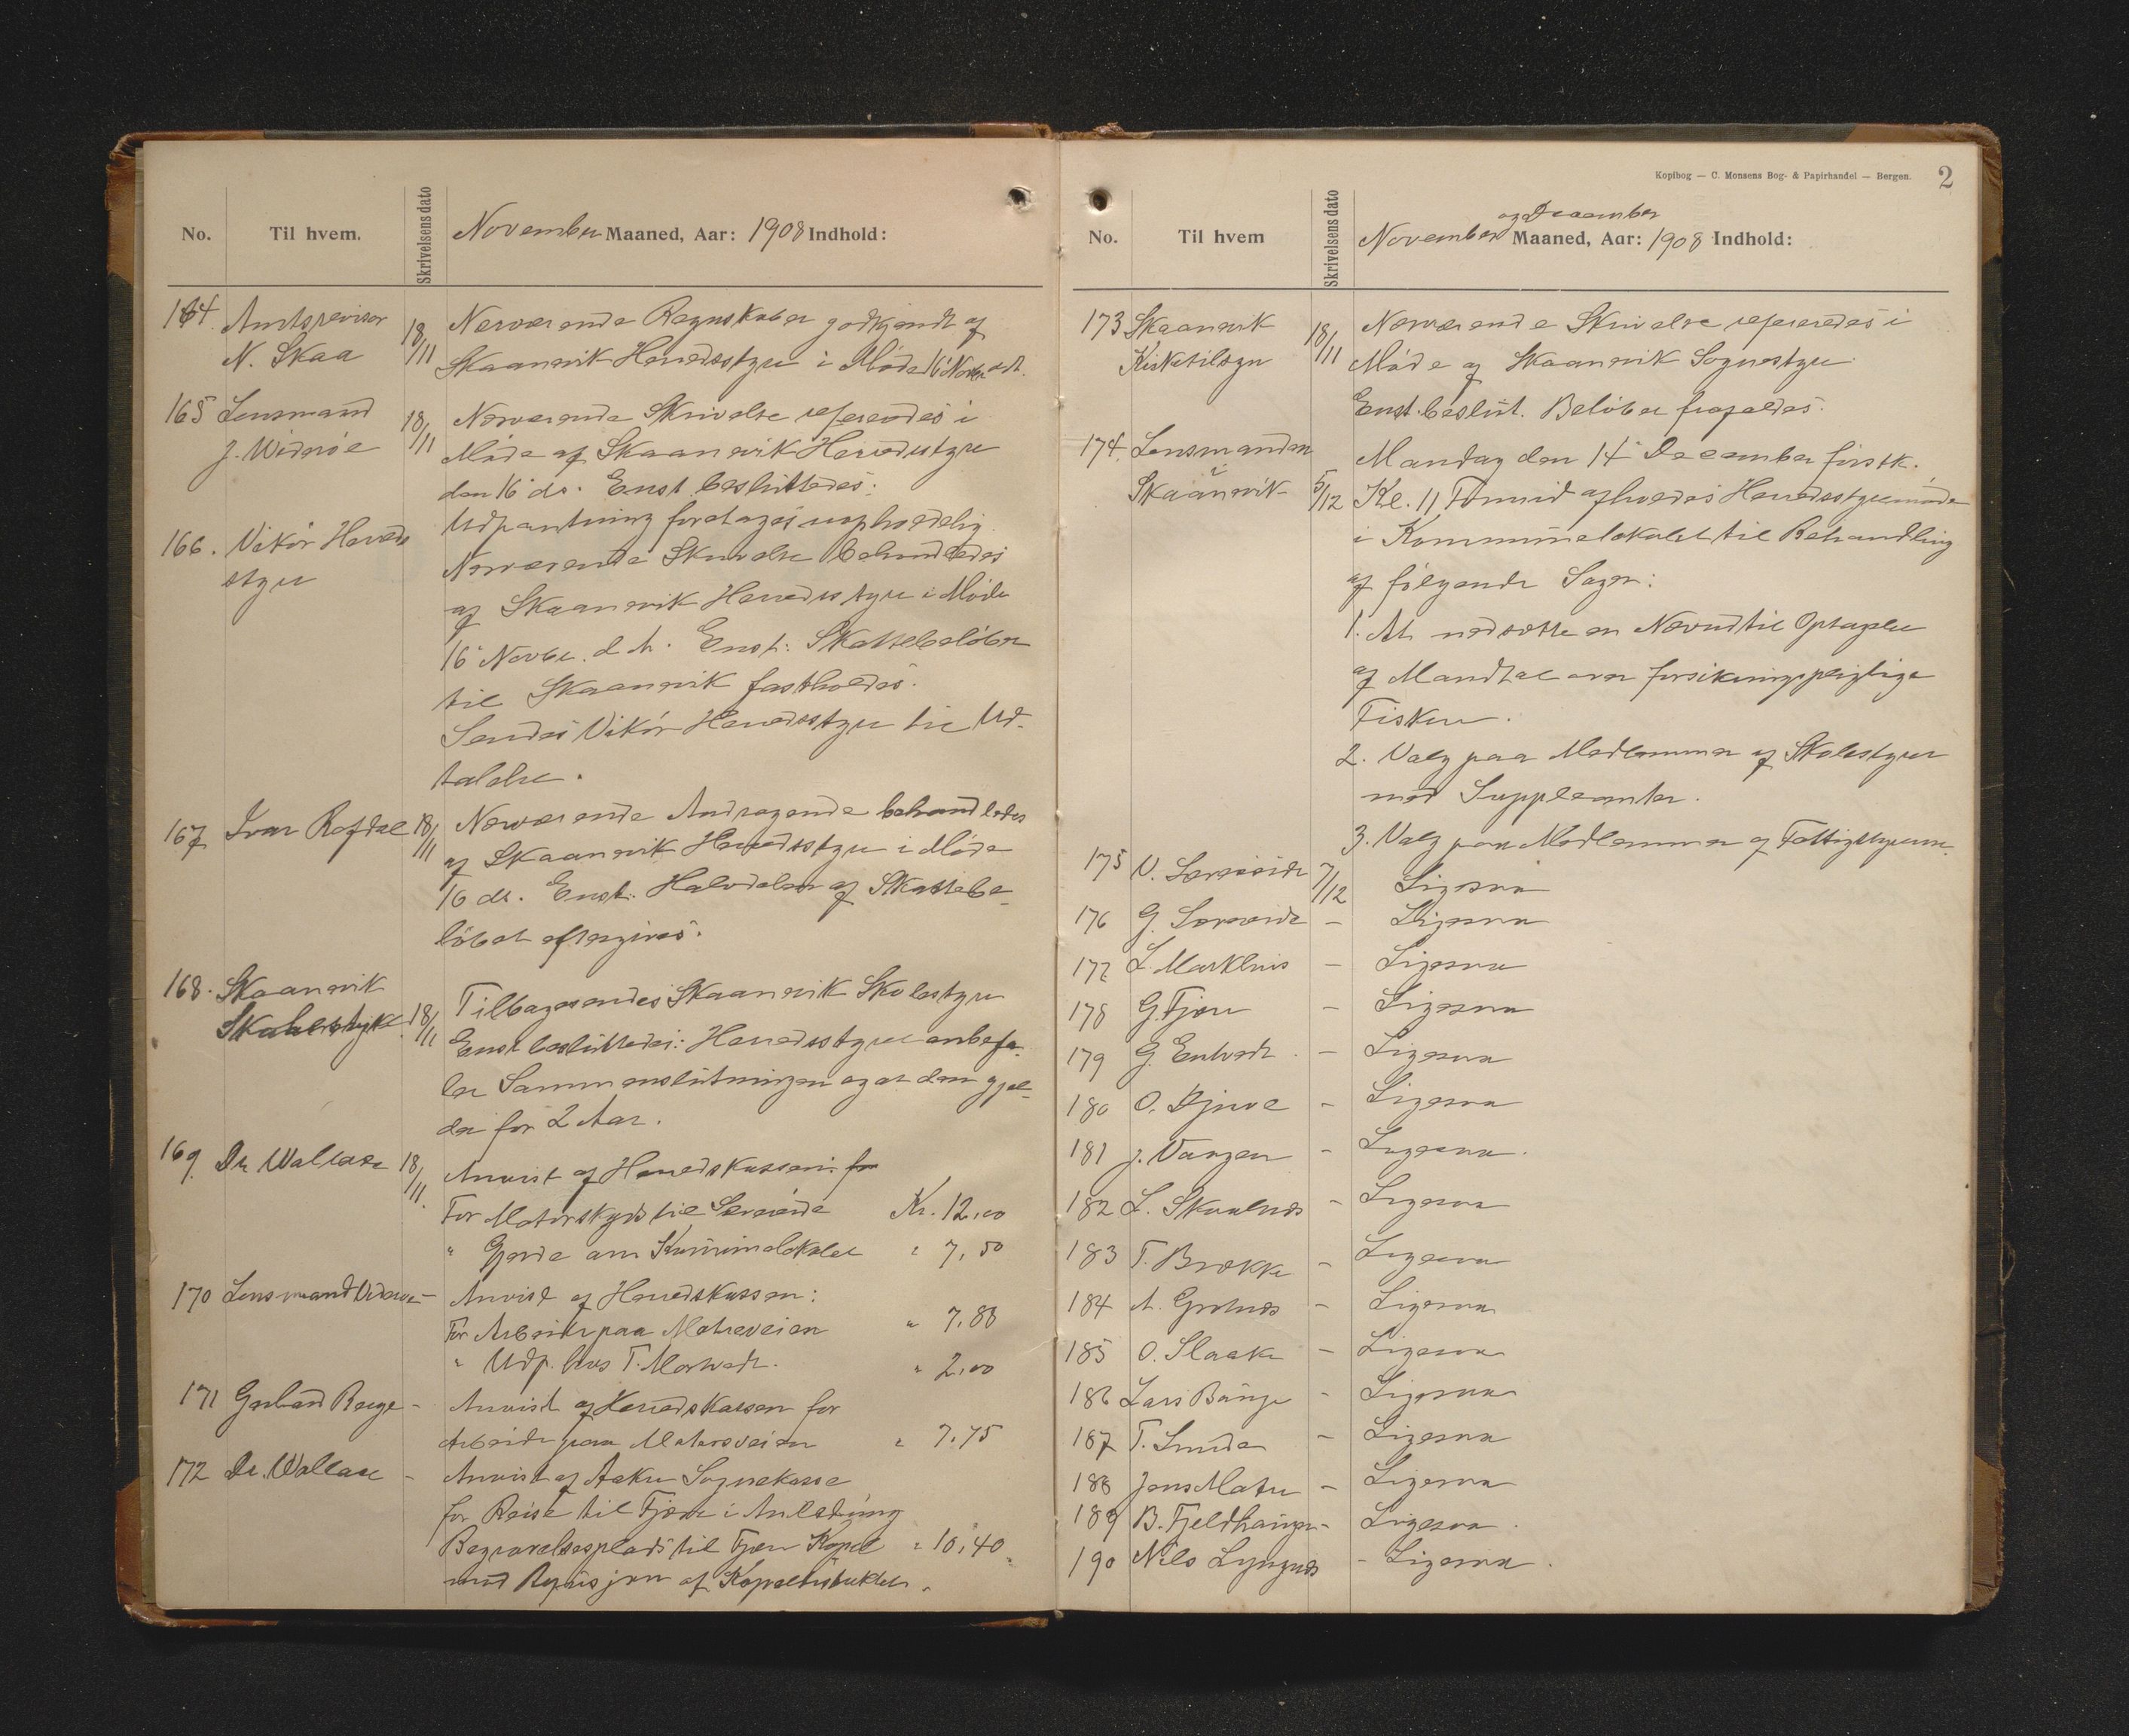 No. Til hvem. Skrivelsens dato November Maaned, Aar: 1908 Indhold:
164. Amtsrevisor 18/11 Nærværende Regnskaber godkjendt af
N. Skaa Skaanevik Herredsstyre i Møde 16 Novbr
165 Lensmand 18/11 Nærværende Skrivelse refereredes i
J. Widnöe Møde af Skaanevik Herredsstyre
den 16 ds. Enst. besluttedes:
Udpantning foretages uopholdelig.
166. Vikör Herreds Nærværende Skrivelse behandledes
styre af Skaanevik Herredsstyre i Møde
16 Novbr. d. A. Enst: Skattebeløbet
til Skaanevik fastholdes.
Sendes Vikör Herredsstyre til Ud-
talelse.
167 Ivar Refdal 18/11 Nærværende Andragende behandledes
af Skaanevik Herredsstyre i Møde
16 ds. Enst: Halvdelen af Skattebe-
löbet eftergives.
168. Skaanevik
Skolestyre 18/11 Tilbagesendes Skaanevik Skolestyre
Enst. besluttedes: Herredsstyret anbefa-
ler Sammenslutningen og at den gjæl-
der for 2 Aar.
169. Dr. Wallace 18/11. Anvist af Herredskassen: for
For Motorskyds til Særeide Kr. 12,00
" Gjerde om Kommunelokalet " 7,50
170 Lensmand Widnöe - Anvist af Herredskassen:
For Arbeide paa Matreveien " 7,80
" Udp. hos T. " 2,00
171 Berge - Anvist af Herredskassen for
Arbeide paa Matreveien " 7,75
172 Dr. Wallace - Anvist af Aakre Sognekasse
for Reise til Fjære i Anledning
Begravelsesplads til Fjære Kapel " 10,40
med
Kopibog — C. Monsens Bog- & Papirhandel — Bergen. 2
og December
No. Til hvem Skrivelsens dato November Maaned, Aar: 1908 Indhold:
173 Skaanevik 18/11 Nærværende Skrivelse refereredes i
Kirketilsyn Møde af Skaanevik Sognestyre
Enst. beslut. Beløbet frafaldes.
174. Lensmanden Mandag den 14 December førstk.
i
Skaanevik 5/12 Kl. 11 Formid afholdes Herredsstyremøde
i Kommunelokalet til Behandling
af følgende Sager:
1. At nedsætte en Nævnd til Optagelse
af Mandtal over forsikringspligtige
Fiskere.
2. Valg paa Medlemmer af Skolestyret
med Suppleanter.
3. Valg paa Medlemmer af Fattigstyrerne.
175 V. Særeide 7/12 Ligesaa
176 G. Særeide - Ligesaa
177 L. Markhus - Ligesaa
178 G. Fjære - Ligesaa
179 G. Enkvedt - Ligesaa
180 O. Djuve - Ligesaa
181 J. Vangen - Ligesaa.
182 L. Skaalnæs - Ligesaa
183 T. Brække - Ligesaa
184 A. Grotnæs - Ligesaa
185 O. Slaake - Ligesaa
186 Lars Bauge - Ligesaa
187 T. Sunde - Ligesaa
188 Jens Matre - Ligesaa
189 B. Fjeldhaugen - Ligesaa.
190 Nils Lyngnæs - Ligesaa.